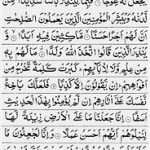 يَجْعَل لَّهُۥ عِوَجَا ۜ ۝ قَيِّمًا لِّيُنذِرَ بَأْسًا شَدِيدًا مِّن
لَّدُنْهُ وَيُبَشِّرَ ٱلْمُؤْمِنِينَ ٱلَّذِينَ يَعْمَلُونَ ٱلصَّٰلِحَٰتِ
وَيُنذِرَ ٱلَّذِينَ قَالُوا۟ ٱتَّخَذَ ٱللَّهُ وَلَدًا ۝ مَّا لَهُم بِهِۦ
مِنْ عِلْمٍ وَلَا لِءَابَآئِهِمْ ۚ كَبُرَتْ كَلِمَةً تَخْرُجُ مِنْ
أَفْوَٰهِهِمْ ۚ إِن يَقُولُونَ إِلَّا كَذِبًا ۝ فَلَعَلَّكَ بَٰخِعٌ
نَّفْسَكَ عَلَىٰٓ ءَاثَٰرِهِمْ إِن لَّمْ يُؤْمِنُوا۟ بِهَٰذَا ٱلْحَدِيثِ
أَسَفًا ۝ إِنَّا جَعَلْنَا مَا عَلَى ٱلْأَرْضِ زِينَةً لَّهَا
لِنَبْلُوَهُمْ أَيُّهُمْ أَحْسَنُ عَمَلًا ۝ وَإِنَّا لَجَٰعِلُونَ مَا